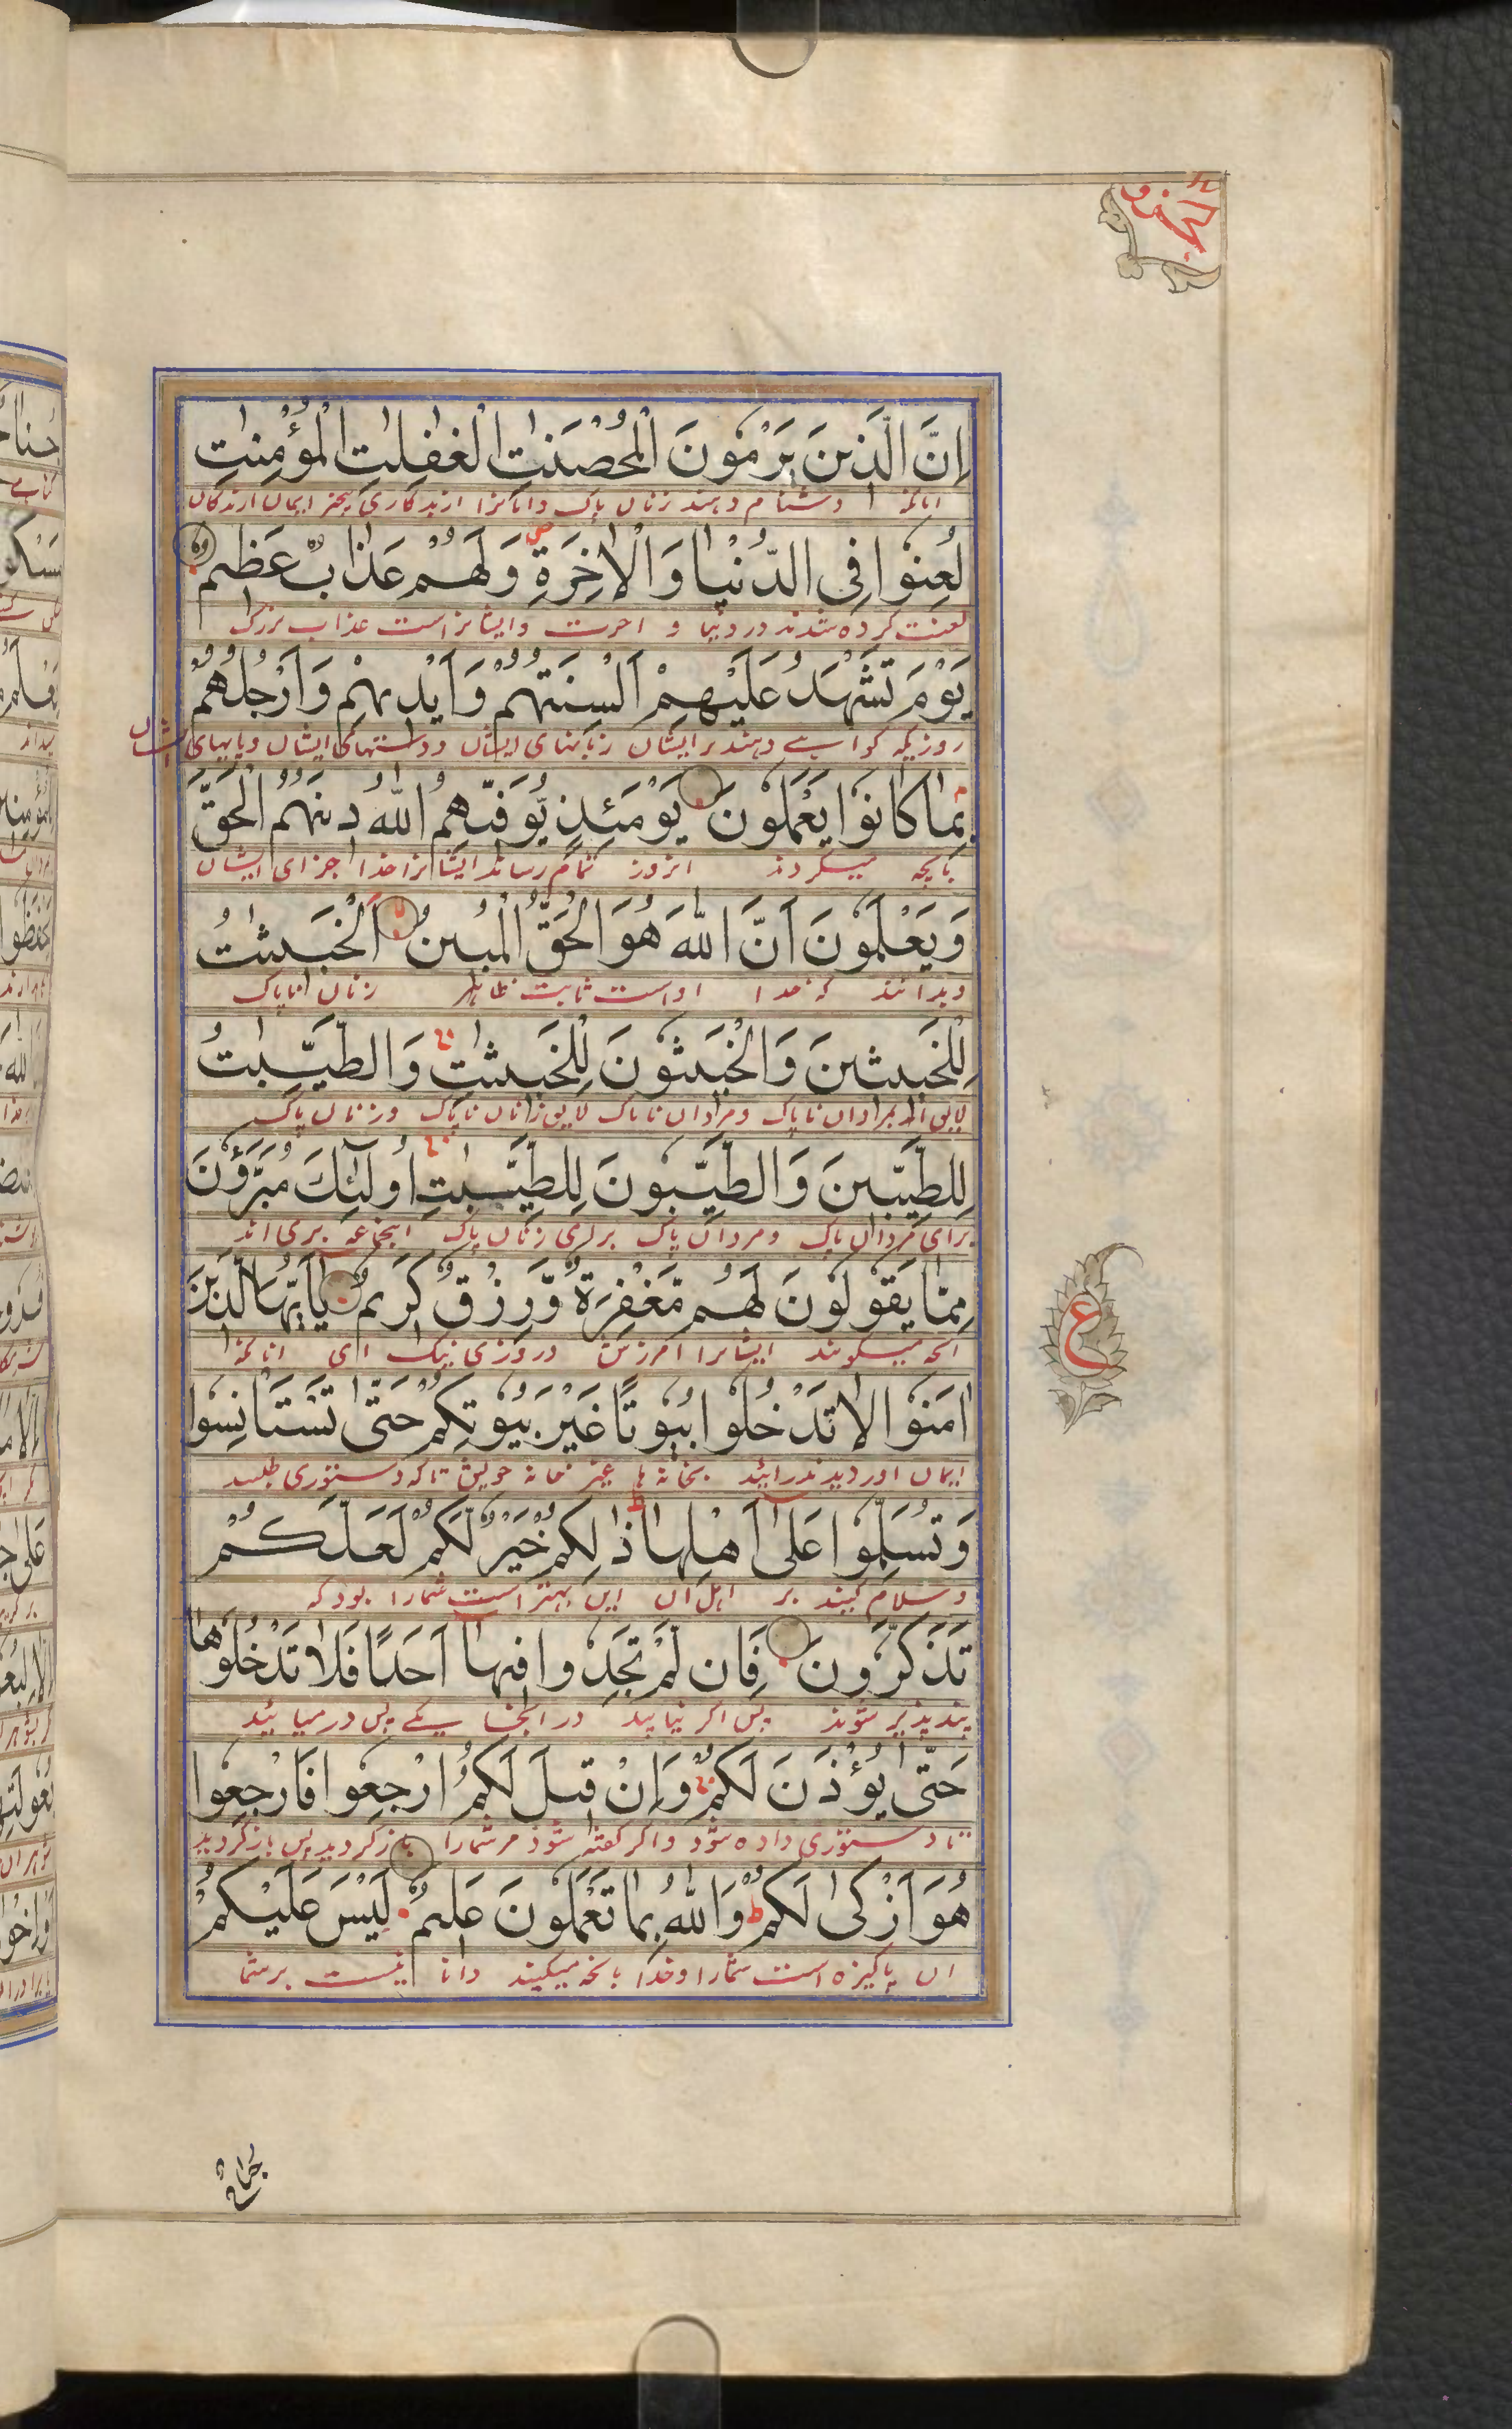 الجزو ١٨
اِنَّ الَّذِینَ یَرْمُونَ الْمُحْصَنٰتِ الْغٰفِلٰتِ الْمُؤْمِنٰتِ
دشنام دهند زنان پاک
لُعِنُوا فِی الدُّنْیَا وَالْاٰخِرَةِ وَلَهُمْ عَذَابٌ عَظِیمٌ
لعنت کرده شدند در دنیا و اخرت وایشانراست عذاب بزرک
یَوْمَ تَشْهَدُ عَلَیْهِمْ اَلْسِنَتُهُمْ وَاَیْدِیهِمْ وَاَرْجُلُهُمْ
روزیکه کواهی دهند بر ایشان زبانهای ایشان ودستهای ایشان وپایهای ایشان
بِمَا کَانُوا یَعْمَلُونَ یَوْمَئِذٍ یُّوَفِّیهِمُ اللّٰهُ دِینَهُمُ الْحَقَّ
میکردند انروز تمام رساند ایشانرا خدا جزای ایشان
وَیَعْلَمُونَ اَنَّ اللّٰهَ هُوَ الْحَقُّ الْمُبِینُ اَلْخَبِیثٰتُ
وبدانند که خدا اوست ثابت ظاهر زنان ناپاک
لِلْخَبِیثِینَ وَالْخَبِیثُونَ لِلْخَبِیثٰتِ وَالطَّیِّبٰتُ
ناپاک ومردان ناپاک لایق زنان ناپاک وزنان پاک
لِلطَّیِّبِینَ وَالطَّیِّبُونَ لِلطَّیِّبٰتِ اُولٰٓئِكَ مُبَرَّؤُنَ
برای مردان پاک ومردان پاک برای زنان پاک اینجماعه بری اند
مِمَّا یَقُولُونَ لَهُمْ مَّغْفِرَةٌ وَّرِزْقٌ کَرِیمٌ یَا اَیُّهَا الَّذِینَ
انچه میکویند ایشانرا امرزش وروزی نیک ای انانکه
اٰمَنُوا لَا تَدْخُلُوا بُیُوتًا غَیْرَ بُیُوتِکُمْ حَتّٰی تَسْتَاْنِسُوا
ایمان اوردید در میائید بخانه ها غیر خانه خویش تا که دستوری طلبید
وَتُسَلِّمُوا عَلٰٓی اَهْلِهَا ذٰلِکُمْ خَیْرٌ لَّکُمْ لَعَلَّکُمْ
وسلام کنید بر اهل ان این بهتر است شمارا بود که
تَذَکَّرُونَ فَاِن لَّمْ تَجِدُوا فِیهَا اَحَدًا فَلَا تَدْخُلُوهَا
پندپذیر شوند پس اکر نیابید در انجا یکے پس در میائید
حَتّٰی یُؤْذَنَ لَکُمْ وَاِنْ قِیلَ لَکُمُ ارْجِعُوا فَارْجِعُوا
تا دستوری داده شود واکر کفته شود مر شمارا باز کردید پس باز کردید
هُوَ اَزْکٰی لَکُمْ وَاللّٰهُ بِمَا تَعْمَلُونَ عَلِیمٌ لَیْسَ عَلَیْکُمْ
ان پاکیزه است شمارا وخدا بانچه میکنید دانا نیست بر شما
ع
جناح